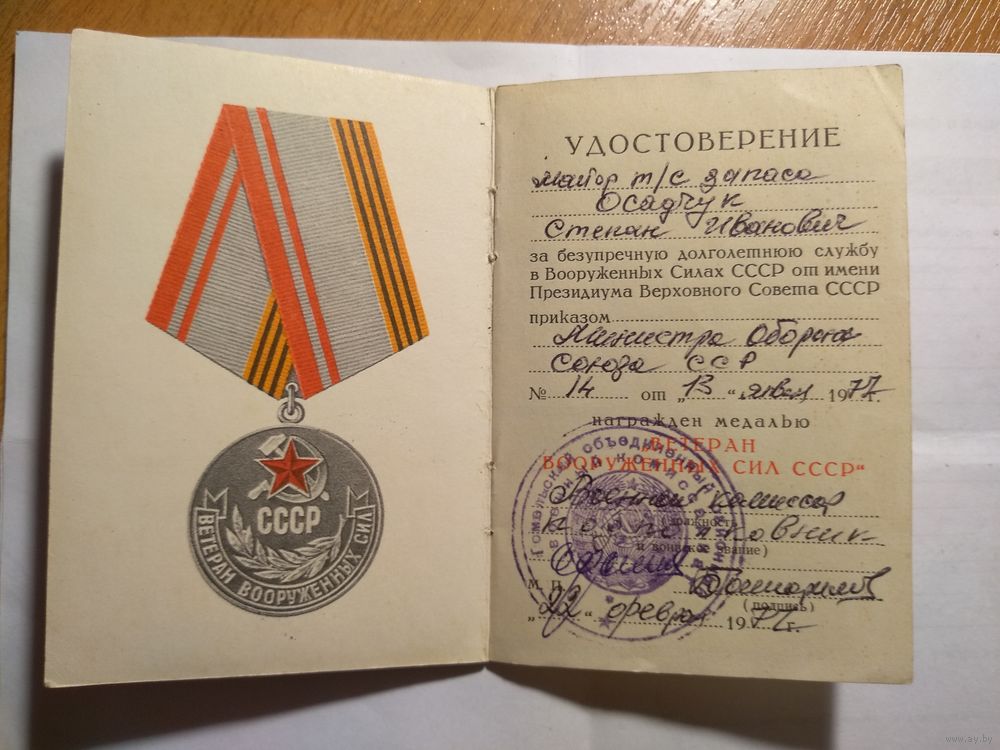 СССР
ВЕТЕРАН ВООРУЖЕННЫХ СИЛ
УДОСТОВЕРЕНИЕ
майор т/с запаса
Осадчук
Степан Иванович
за безупречную долголетнюю службу
в Вооруженных Силах СССР от имени
Президиума Верховного Совета СССР
приказом
Министра Обороны
Союза ССР
№ 14 от „13“ января 1977 г.
награжден медалью
„ВЕТЕРАН
ВООРУЖЕННЫХ СИЛ СССР“
Военный комиссар
(должность
полковник
и воинское звание)
М. П.
(подпись)
„22“ февраля 1977 г.
Гомельский объединенный
www.ay.by